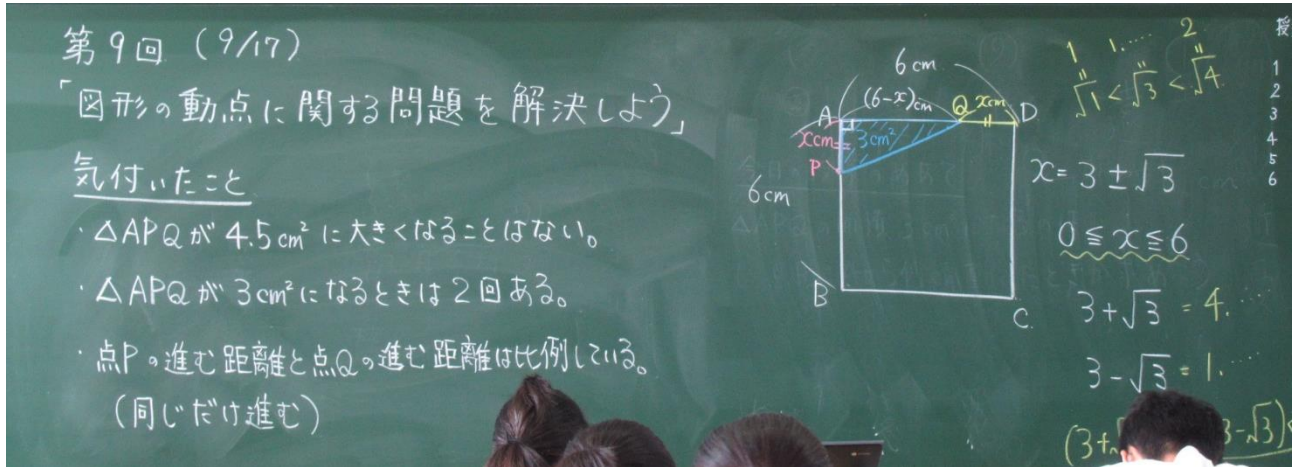 第9回 (9/17)
「図形の動点に関する問題を解決しよう」
気付いたこと
・△APQが4.5cm²に大きくなることはない。
・△APQが3cm²になるときは2回ある。
・点Pの進む距離と点Qの進む距離は比例している。
(同じだけ進む)
6cm
(6-x)cm
Q xcm
A
D
xcm
3cm²
P
6cm
B
C
1 1.…‥ 2
√1<√3<√4
x=3±√3
0≦x≦6
3+√3=4.…‥
3-√3=1.…‥
(3+
3-√3)
授
1
2
3
4
5
6